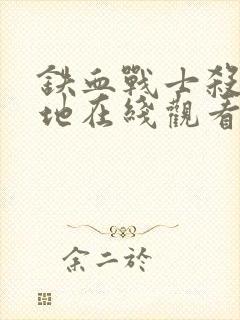 鐵血戰士殺
地在綫觀看
余二於